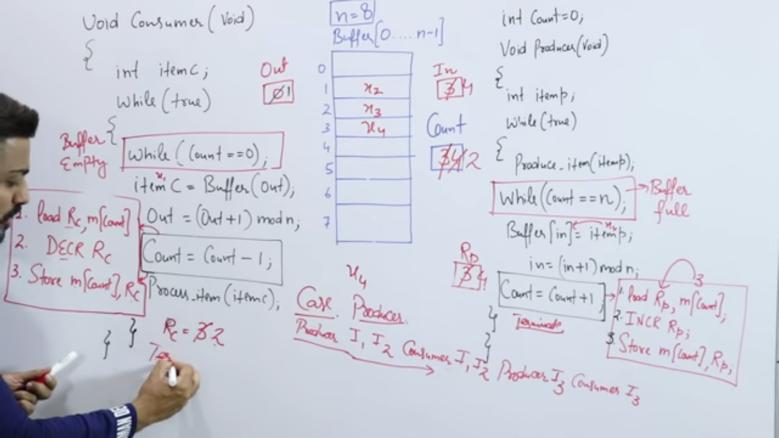 Void Consumer(Void)
{
int itemc;
While(true)
{
Buffer
Empty
While(Count==0);
itemC = Buffer(Out);
Out = (Out+1) mod n;
Count = Count-1;
Process_item(itemc);
}
}
1. load Rc, m[Count]
2. DECR Rc
3. Store m[Count], Rc
Rc = 3 2
n=8
Buffer[0....n-1]
0
1 x2
2 x3
3 x4
4
5
6
7
Out
0 1
In
3 4
Count
3 4 2
x4
Rp
3 4
Case Producer
Producer I1, I2 Consumer I1, I2 Producer I3 Consumer I3
int Count=0;
Void Producer(Void)
{
int itemp;
While(true)
{
Produce_item(itemp);
While(Count==n);
Buffer
full
Buffer[in]=itemp;
in=(in+1)mod n;
Count=Count+1;
}
}
Terminate
3
1. load Rp, m[Count];
2. INCR Rp;
3. Store m[Count], Rp;